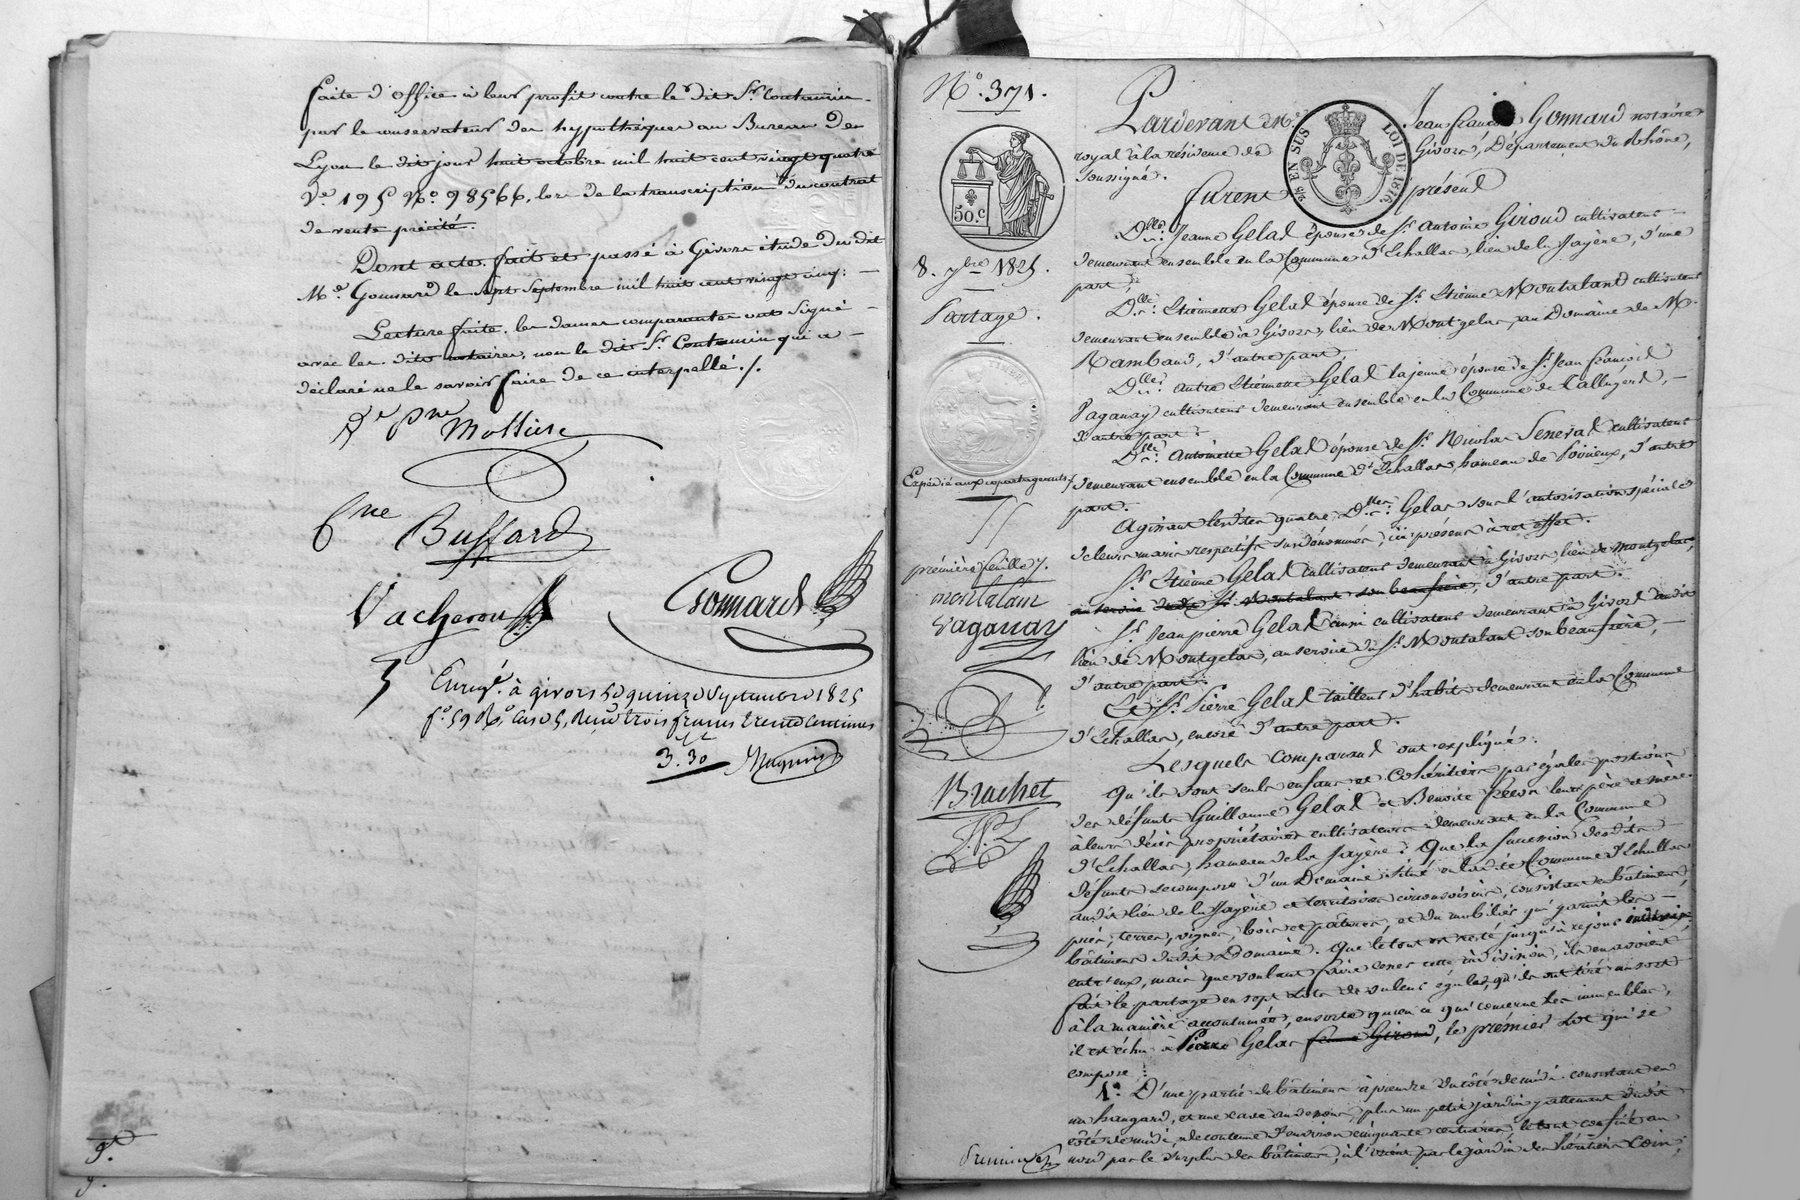 faite d'office à leur profit contre le dit Sr. Contamin
par le conservateur des hypothèques au Bureau de
Lyon le dit jour huit octobre mil huit cent vingt quatre
Ve. 195 No. 98566, lors de la transcription du contrat
de vente précité.
Dont acte. fait et passé à Givors étude du dit
Me. Gonnard le sept Septembre mil huit cent vingt cinq.
Lecture faite, les dames comparantes ont signé
avec les dits notaires, non le dit Sr. Contamin qui a
déclaré ne le savoir faire de ce interpellé./.
Mollière
Buffard
Vacheron
Gonnard
Enregé. à givors le quinze Septembre 1825
fo. 59 Vo. Cases 5, Reçu trois francs trente Centimes
3.30
9.
No. 371.
50.c
8. 7bre 1825.
Partage.
Expédié aux copartageants
première feuille
montalant
Vaganay
Brachet
J.P.G
2/10 EN SUS LOI DE 1816
Pardevant Me. Jean françois Gonnard notaire
royal à la résidence de Givors, Département du Rhône,
soussigné.
furent présent
Dlle. Jeanne Gelas épouse de Sr. Antoine Giroud cultivateur
demeurant ensemble en la Commune d'Echallas, lieu de la Jayère, d'une
part;
Dlle. Etiennette Gelas épouse de Sr. Etienne Montalant cultivateur
demeurant ensemble à Givors, lieu de Montgelas, au Domaine de Mr.
Rambaud, d'autre part,
Dlle. autre Etiennette Gelas la jeune épouse de Sr. Jean françois
Vaganay cultivateur demeurant ensemble en la Commune de
d'autre part.
Dlle. Antoinette Gelas épouse de Sr. Nicolas Seneval cultivateur
demeurant ensemble en la Commune d'Echallas, hameau de d'autre
part.
Agissant lesdites quatre Dlles. Gelas sous l'autorisation spéciale
de leurs maris respectifs susdénommés, ici présens à cet effet.
Sr. Etienne Gelas cultivateur demeurant à Givors, lieu de Montgelas,
au service dudit Sr. Montalant son beaufrère, d'autre part.
Sr. Jean pierre Gelas aussi cultivateur demeurant à Givors susdit
lieu de Montgelas, au service du Sr. Montalant son beaufrère,
d'autre part.
Et Sr. Pierre Gelas tailleur d'habits demeurant en la Commune
d'Echallas, encore d'autre part.
Lesquels comparans ont expliqué:
Qu'ils sont seuls enfans et Cohéritiers par égales portions
des défunts Guillaume Gelas et Benoite freson leurs père et mère
à leurs décès propriétaires cultivateurs demeurant en la Commune
d'Echallas, hameau de la Jayère: Que la succession desdits
défunts se compose d'un Domaine situé en la dite Commune d'Echallas
audit lieu de la Jayère et territoires circonvoisins, consistant en bâtimens,
prés, terres, vignes, bois et pâtures, et du mobilier qui garnit les
bâtimens dudit Domaine. Que le tout est resté jusqu'à ce jour indivis
entr'eux, mais que voulant faire cesser cette indivision, ils en avoient
fait le partage en sept Lots de valeur égales, qu'ils ont tiré au sort
à la manière accoutumée, ensorte qu'en ce qui concerne les immeubles,
il est échu à Pierre Gelas femme Giroud, le premier Lot qui se
compose:
1o. D'une partie de bâtimens à prendre du côté de midi consistant en
un hangard, et une cave au dessous, plus un petit jardin y attenant dudit
côté de midi, de contenue d'environ cinquante centiares, le tout confiné au
nord par le surplus des bâtimens, à l'orient par le jardin des héritiers Coin;